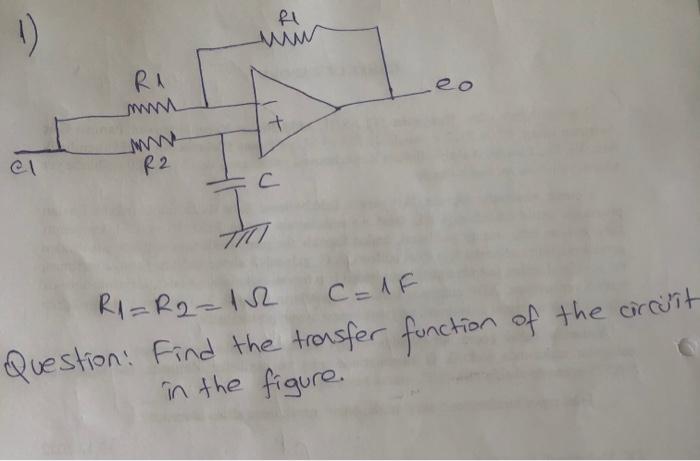 1)
R1
R1
-
eo
+
e1
R2
C
R1=R2=1Ω C=1F
Question: Find the transfer function of the circüit
in the figure.